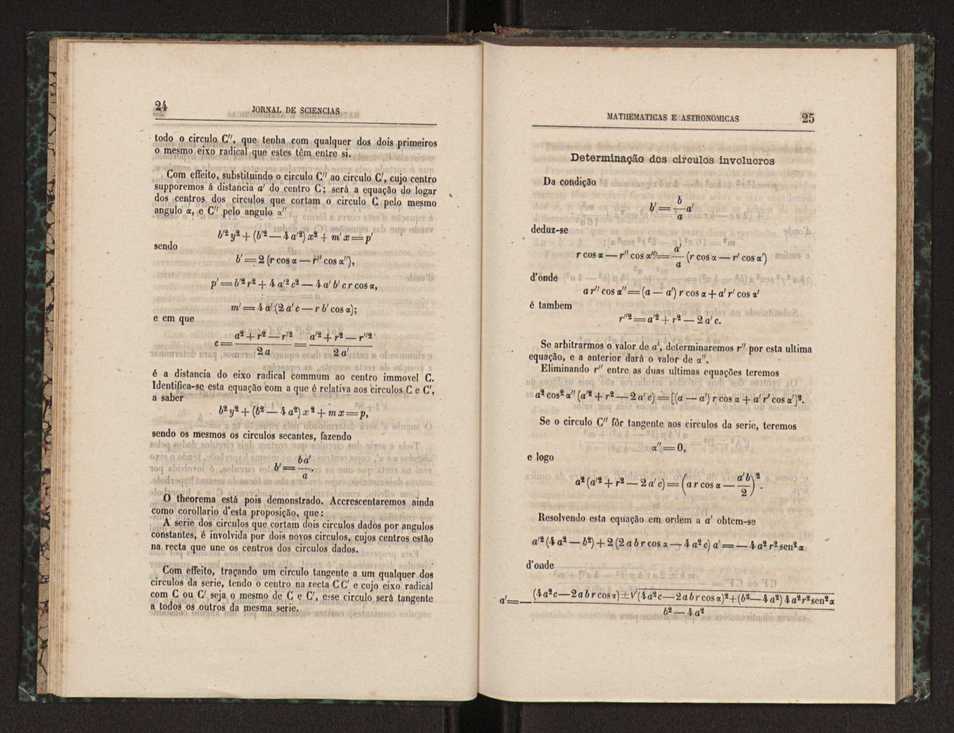 24
JORNAL DE SCIENCIAS
todo o circulo C″, que tenha com qualquer dos dois primeiros
o mesmo eixo radical que estes têm entre si.
Com effeito, substituindo o circulo C″ ao circulo C′, cujo centro
supporemos á distancia a′ do centro C; será a equação do logar
dos centros dos circulos que cortam o circulo C pelo mesmo
angulo α, e C″ pelo angulo α″
b′² y² + (b′² — 4 a′²) x² + m′ x = p′
sendo
b′ = 2 (r cos α — r″ cos α″),
p′ = b′² r² + 4 a′² c² — 4 a′ b′ c r cos α,
m′ = 4 a′ (2 a′ c — r b′ cos α);
e em que
c = (a² + r² — r′²) / 2 a = (a′² + r² — r″²) / 2 a′
é a distancia do eixo radical commum ao centro immovel C.
Identifica-se esta equação com a que é relativa aos circulos C e C′,
a saber
b² y² + (b² — 4 a²) x² + m x = p,
sendo os mesmos os circulos secantes, fazendo
b′ = b a′ / a.
O theorema está pois demonstrado. Accrescentaremos ainda
como corollario d'esta proposição, que:
A serie dos circulos que cortam dois circulos dados por angulos
constantes, é involvida por dois novos circulos, cujos centros estão
na recta que une os centros dos circulos dados.
Com effeito, traçando um circulo tangente a um qualquer dos
circulos da serie, tendo o centro na recta C C′ e cujo eixo radical
com C ou C′ seja o mesmo de C e C′, esse circulo será tangente
a todos os outros da mesma serie.
MATHEMATICAS E ASTRONOMICAS
25
Determinação dos circulos involucros
Da condição
b′ = b / a a′
deduz-se
r cos α — r″ cos α″ = a′ / a (r cos α — r′ cos α′)
d'onde
a r″ cos α″ = (a — a′) r cos α + a′ r′ cos α′
é tambem
r″² = a′² + r² — 2 a′ c.
Se arbitrarmos o valor de a′, determinaremos r″ por esta ultima
equação, e a anterior dará o valor de α″.
Eliminando r″ entre as duas ultimas equações teremos
a² cos² α″ (a′² + r² — 2 a′ c) = [(a — a′) r cos α + a′ r′ cos α′]².
Se o circulo C″ fôr tangente aos circulos da serie, teremos
α″ = 0,
e logo
a² (a′² + r² — 2 a′ c) = (a r cos α — a′ b / 2)².
Resolvendo esta equação em ordem a a′ obtem-se
a′² (4 a² — b²) + 2 (2 a b r cos α — 4 a² c) a′ = — 4 a² r² sen² α
d'onde
a′ = — (4 a² c — 2 a b r cos α) ± √(4 a² c — 2 a b r cos α)² + (b² — 4 a²) 4 a² r² sen² α / b² — 4 a²